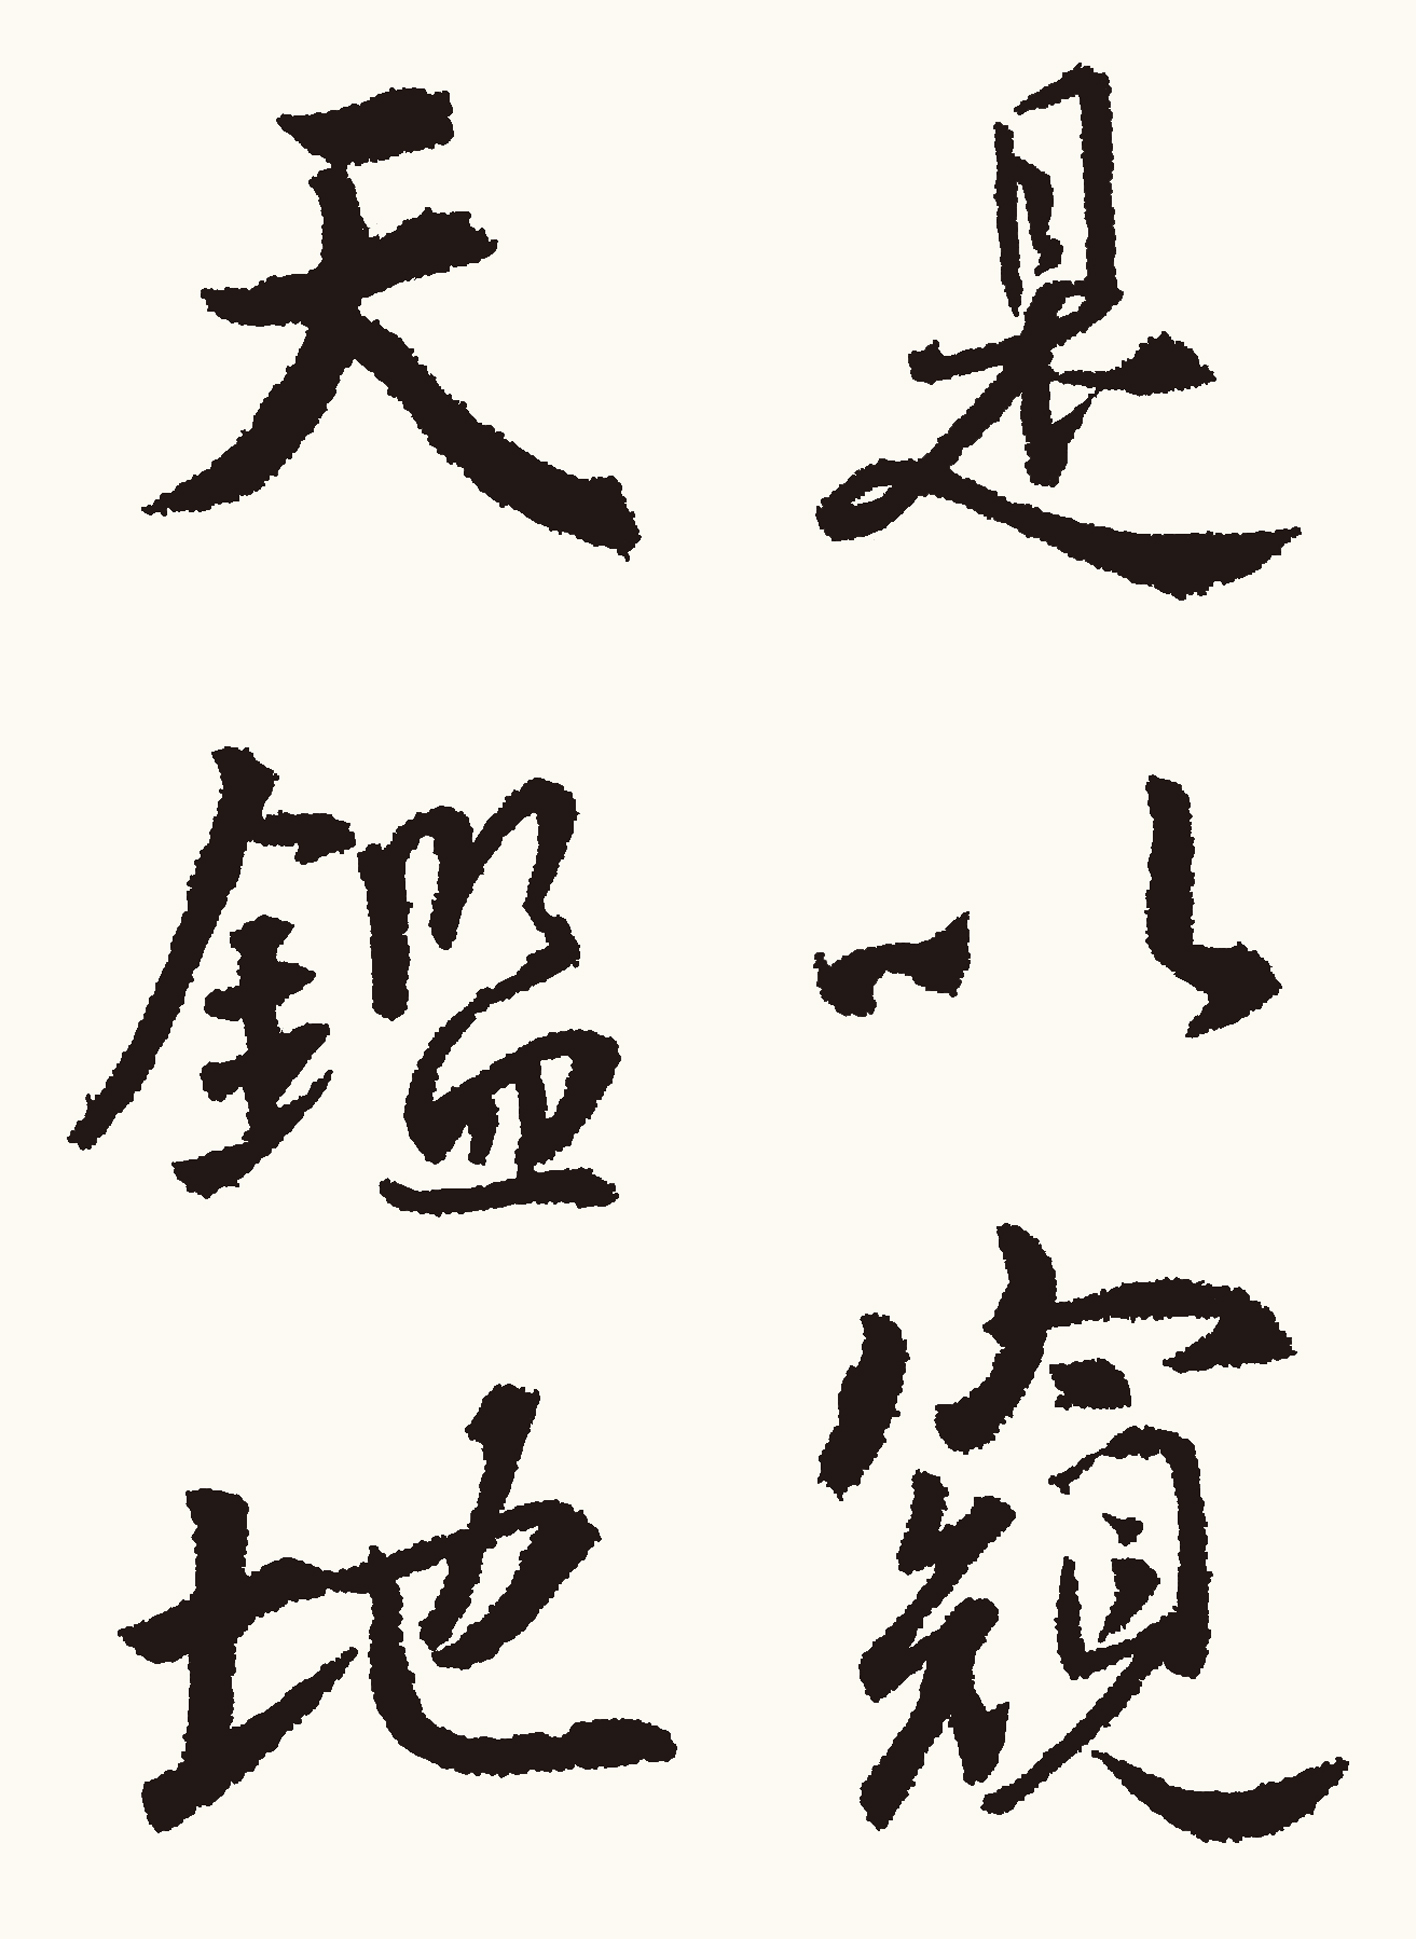 是以窺
天鑑地